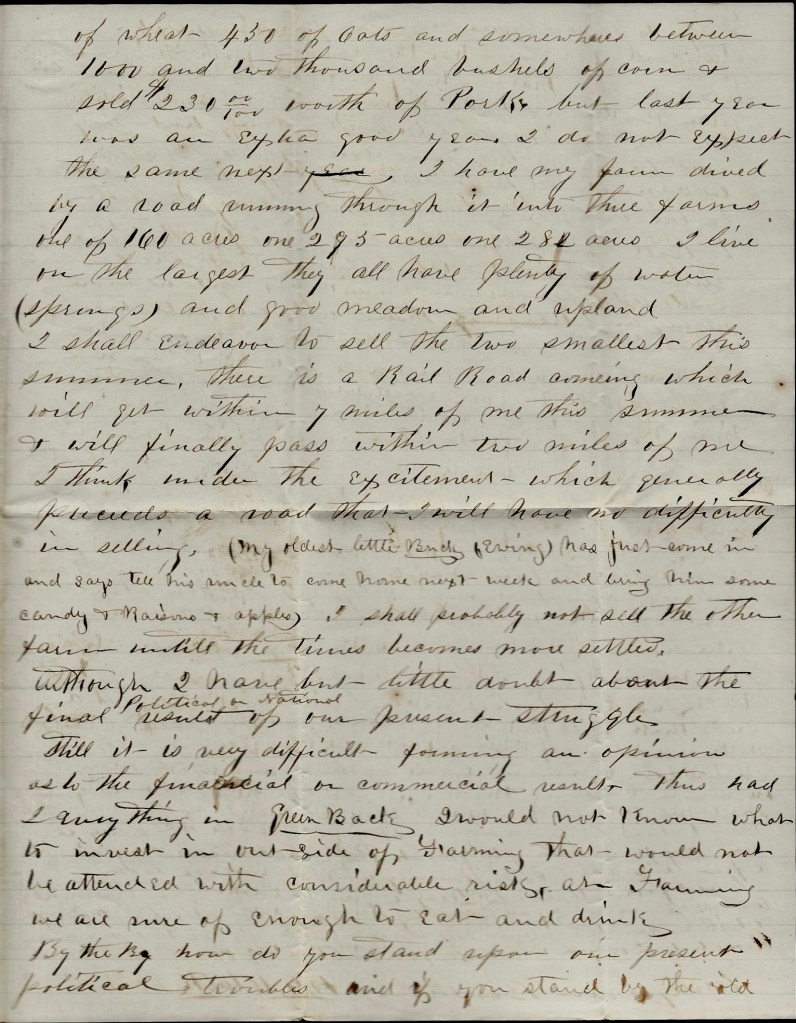 of wheat 430 of Oats and somewhares between
1000 and two thousand bushels of corn &
sold $230 00/100 worth of Pork, but last year
was an Extra good year I do not Expect
the same next year, I have my farm dived
by a road running through it into three farms
one of 160 acres one 295 acres one 282 acres I live
on the largest they all have plenty of water
(springs) and good meadow and upland
I shall Endeavor to sell the two smallest this
summer, there is a Rail Road comeing which
will get within 7 miles of me this summer
& will finally pass within two miles of me
I think under the Excitement which generally
preceeds a road that I will have no difficulty
in selling, (My oldest little Buck (Ewing) has just come in
and says tell his uncle to come home next week and bring him some
candy & Raisons & apples) I shall probably not sell the other
farm untill the times becomes more settled,
Although I have but little doubt about the
final Political or National result of our present struggle
Still it is very difficult forming an opinion
as to the financial or commercial result, Thus had
I anything in Green Back I would not know what
to invest in out side of Farming that would not
be attended with considerable risk, at Farming
we are sure of Enough to Eat and drink
By the By how do you stand upon our present
political troubles and if you stand by the old